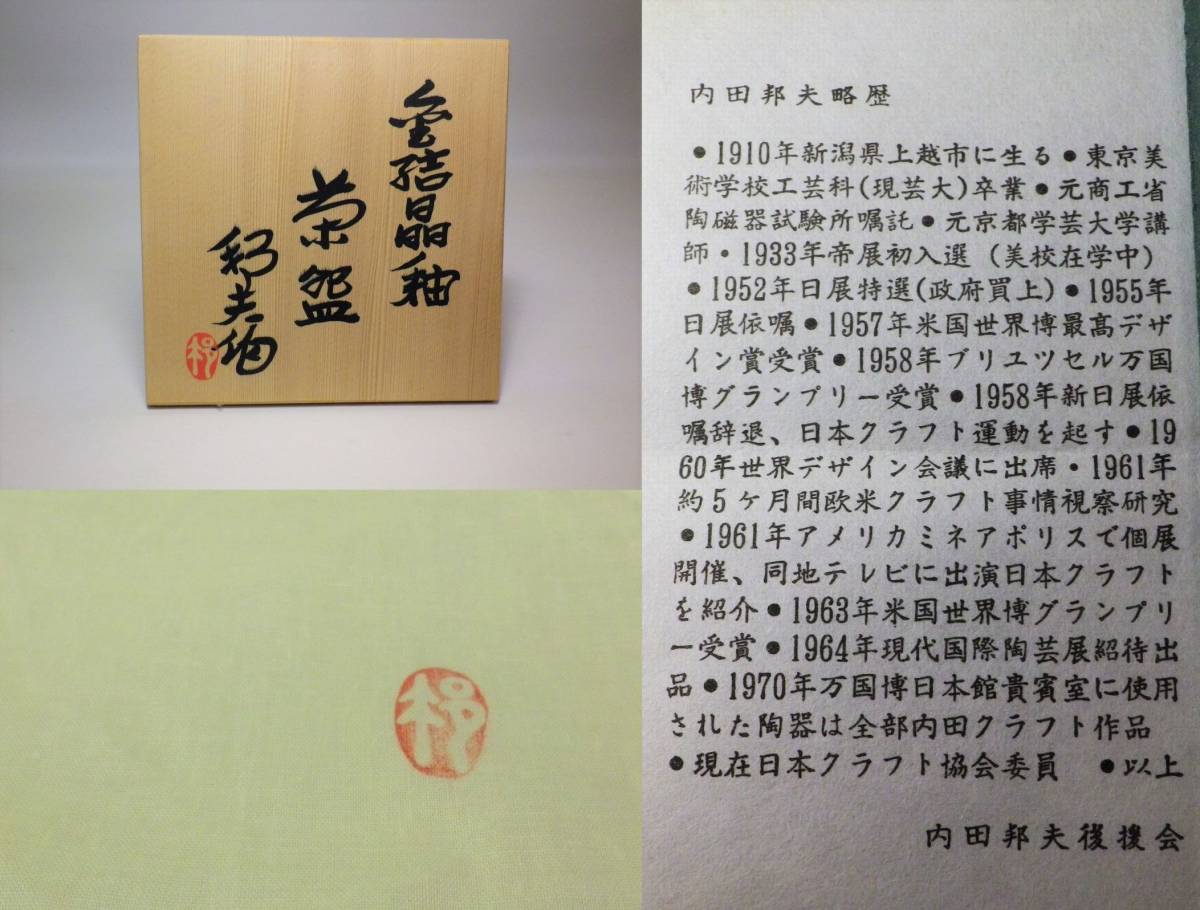 金結晶釉
茶盌
邦夫作
内田邦夫略歴
●1910年新潟県上越市に生る●東京美
術学校工芸科(現芸大)卒業●元商工省
陶磁器試験所嘱託●元京都学芸大学講
師・1933年帝展初入選(美校在学中)
●1952年日展特選(政府買上)●1955年
日展依嘱●1957年米国世界博最高デザ
イン賞受賞●1958年ブリユツセル万国
博グランプリー受賞●1958年新日展依
嘱辞退、日本クラフト運動を起す●19
60年世界デザイン会議に出席・1961年
約5ケ月間欧米クラフト事情視察研究
●1961年アメリカミネアポリスで個展
開催、同地テレビに出演日本クラフト
を紹介●1963年米国世界博グランプリ
ー受賞●1964年現代国際陶芸展紹待出
品●1970年万国博日本館貴賓室に使用
された陶器は全部内田クラフト作品
●現在日本クラフト協会委員 ●以上
内田邦夫後援会